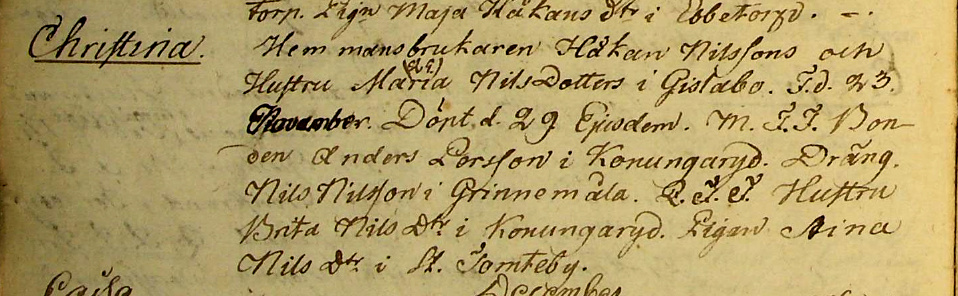 torp. Pigan Maja Håkans Dtr i Ebbetorp. -.
Christina. Hemmansbrukaren Håkan Nilssons och
Hustru Maria Nils Dotters i Gislabo. F. d. 23.
November. Döpt d. 29 Ejusdem. M. F. F. Bon-
den Anders Persson i Konungaryd. Dräng.
Nils Nilsson i Grinnemåla. Q. F. F. Hustru
Brita Nils Dtr i Konungaryd. Pigan Stina
Nils Dtr i St. Tomteby.
Cajsa December